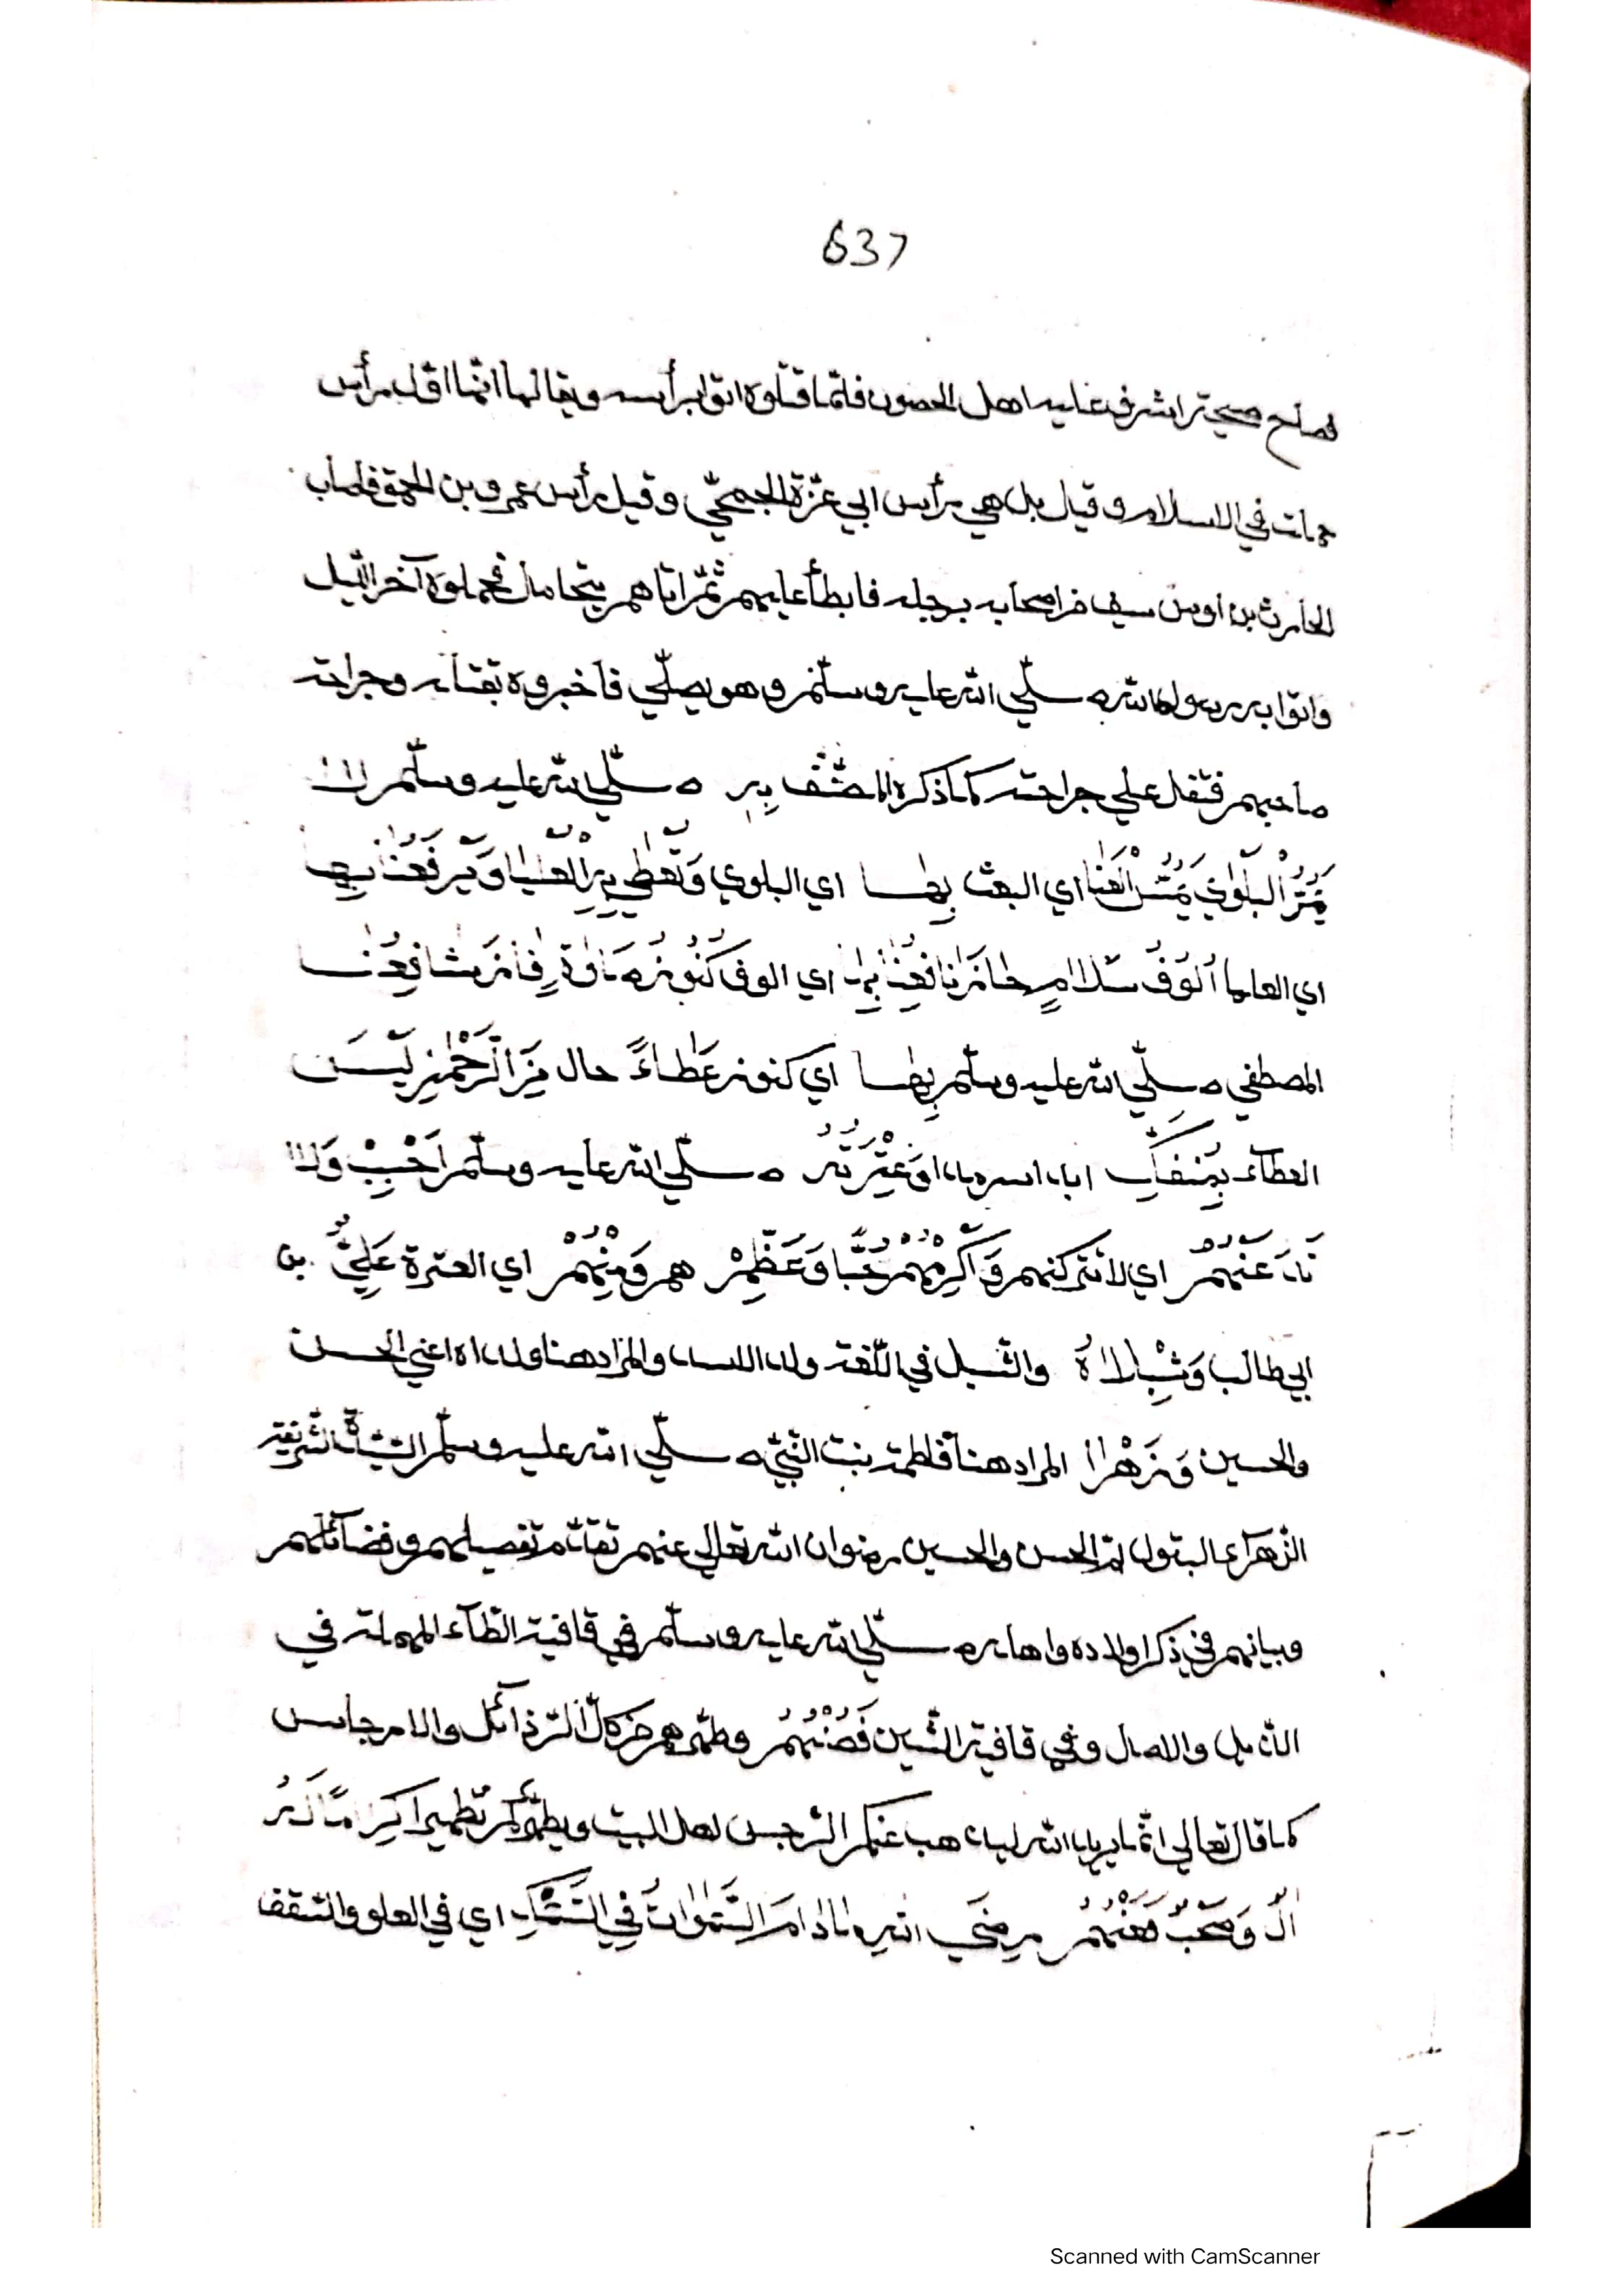 637
فصاح صيحة اشرف عليه اهل الحصون فلمّا قتلوه اتوا برأسه ويقال انّها اوّل رأس
حملت في الاسلام وقيل بل هي رأس ابي عزّة الجمحيّ وقيل رأس عمرو بن الحمق فاصاب
الحارث بن اوس سيف اصحابه برجله فابطأ عليهم ثمّ اتاهم يتحامل فحملوه آخر اللّيل
واتوا به رسول الله صلّي الله عليه وسلّم وهو يصلّي فاخبروه بقتله وجراحة
صاحبهم فتفل علي جراحته كما ذكره المصنّف بِهِ صلّي الله عليه وسلّم
البَلْوٰي اي البعث بِهٰا اي البلوي وَتُعْطٰي بِهِ الْعُلْيٰا وَيُرْفَعُنٰا بِهٰا
اي العليا اُلُوْفُ سَلاٰمٍ اي الوف كُنُوْزُ صَلاٰةٍ شافِعُنٰا
المصطفي صلّي الله عليه وسلّم بِهٰا اي كنوز عَطٰاءً حال مِنَ الرَّحْمٰنِ لَيْسَ
العطآء بِمُنْفَكِّ وَعِتْرَتُهُ صلّي الله عليه وسلّم اَحْبِبْ وَلاٰ
عَنْهُمُ اي لا تتركنهم وَاَكْرِمْهُمُ حُبًّا وَعَظِّمْ هم وَمِنْهُمْ اي العترة عَلِيٌّ بن
ابي طالب وَشِبْلاٰهُ والشبل في اللّغة ولد الاسد والمراد هنا ولداه اعني الحسن
والحسين وَزَهْرٰا المراد هنا فاطمة بنت النّبيّ صلّي الله عليه وسلّم السّيّدة الشّريفة
الزّهراء البتول امّ الحسن والحسين رضوان الله تعالي عنهم تقدّم تفصيلهم وفضآئلهم
وبيانهم في ذكر اولاده واهله صلّي الله عليه وسلّم في قافية الطّآء المهملة في
الذّيل والاصل وفي قافية الشّين فَصُنْهُمُ وطهّرهم من كلّ الرّذآئل والارجاس
كما قال تعالي انّما يريد الله ليذهب عنكم الرّجس اهل البيت ويطهّركم تطهيرا كِرٰامًا لَهُ
اٰلٌ وَصَحْبٌ فَعَنْهُمُ رضي الله ما دام السَّمٰوٰاتُ فِي السَّمْكِ اي في العلو والسّقف
Scanned with CamScanner